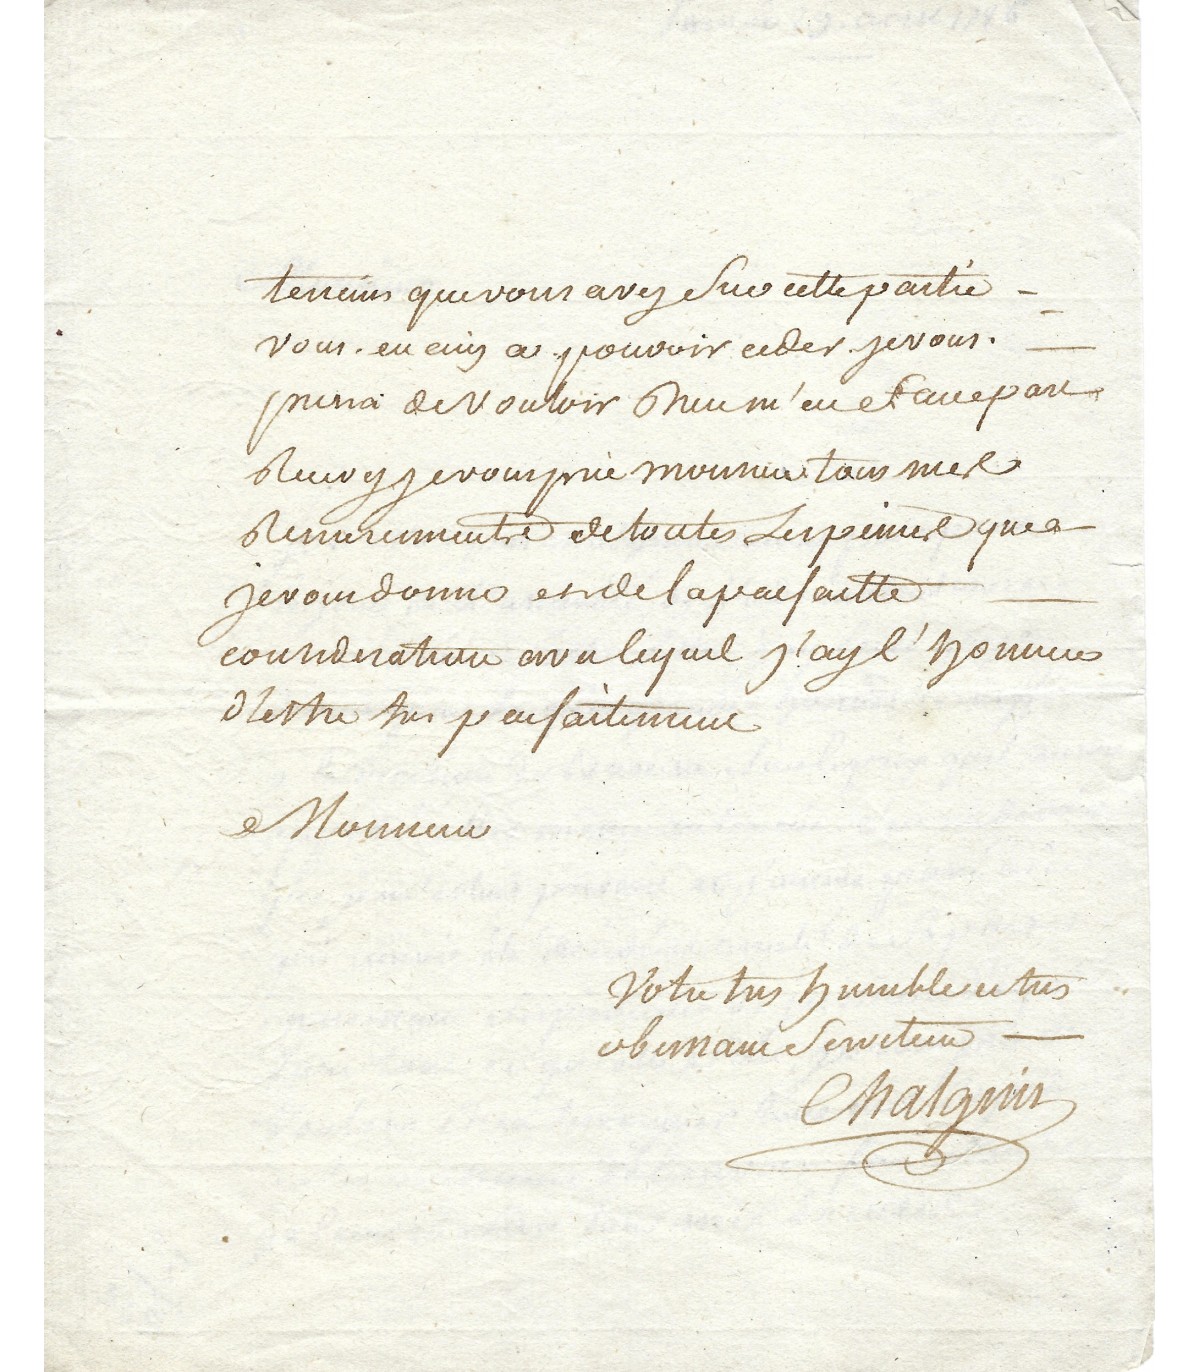 terreins que vous avez Sur cette partie
vous. en avez a pouvoir ceder je vous.
prirai de vouloir bien m'en faire part
Recevez je vous prie monsieur tous mes
Remerciments de toutes Les peines que
je vous donne et de la parfaitte
consideration avec lequel j'ay l'honneur
d'estre tres parfaitement
Monsieur
Votre tres humble et tres
obeissant Serviteur
Chalgrin